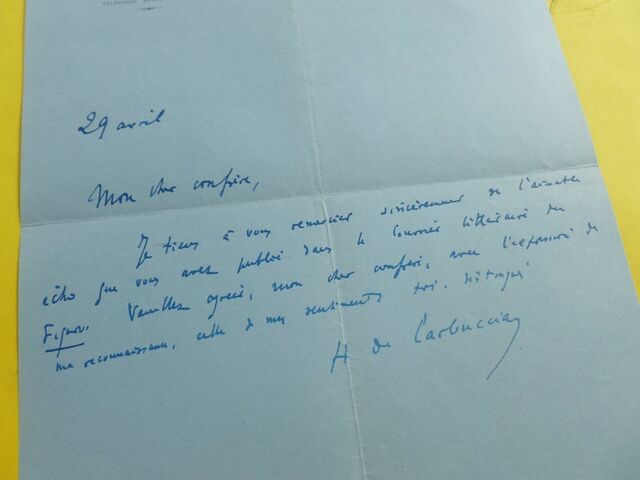 29 avril
Mon cher confrère,
Je tiens à vous remercier sincèrement de l'aimable
écho que vous avez publié dans le Courrier littéraire du
Figaro. Veuillez agréer, mon cher confrère, avec l'expression de
ma reconnaissance, celle de mes sentiments très distingués
H de Carbuccia